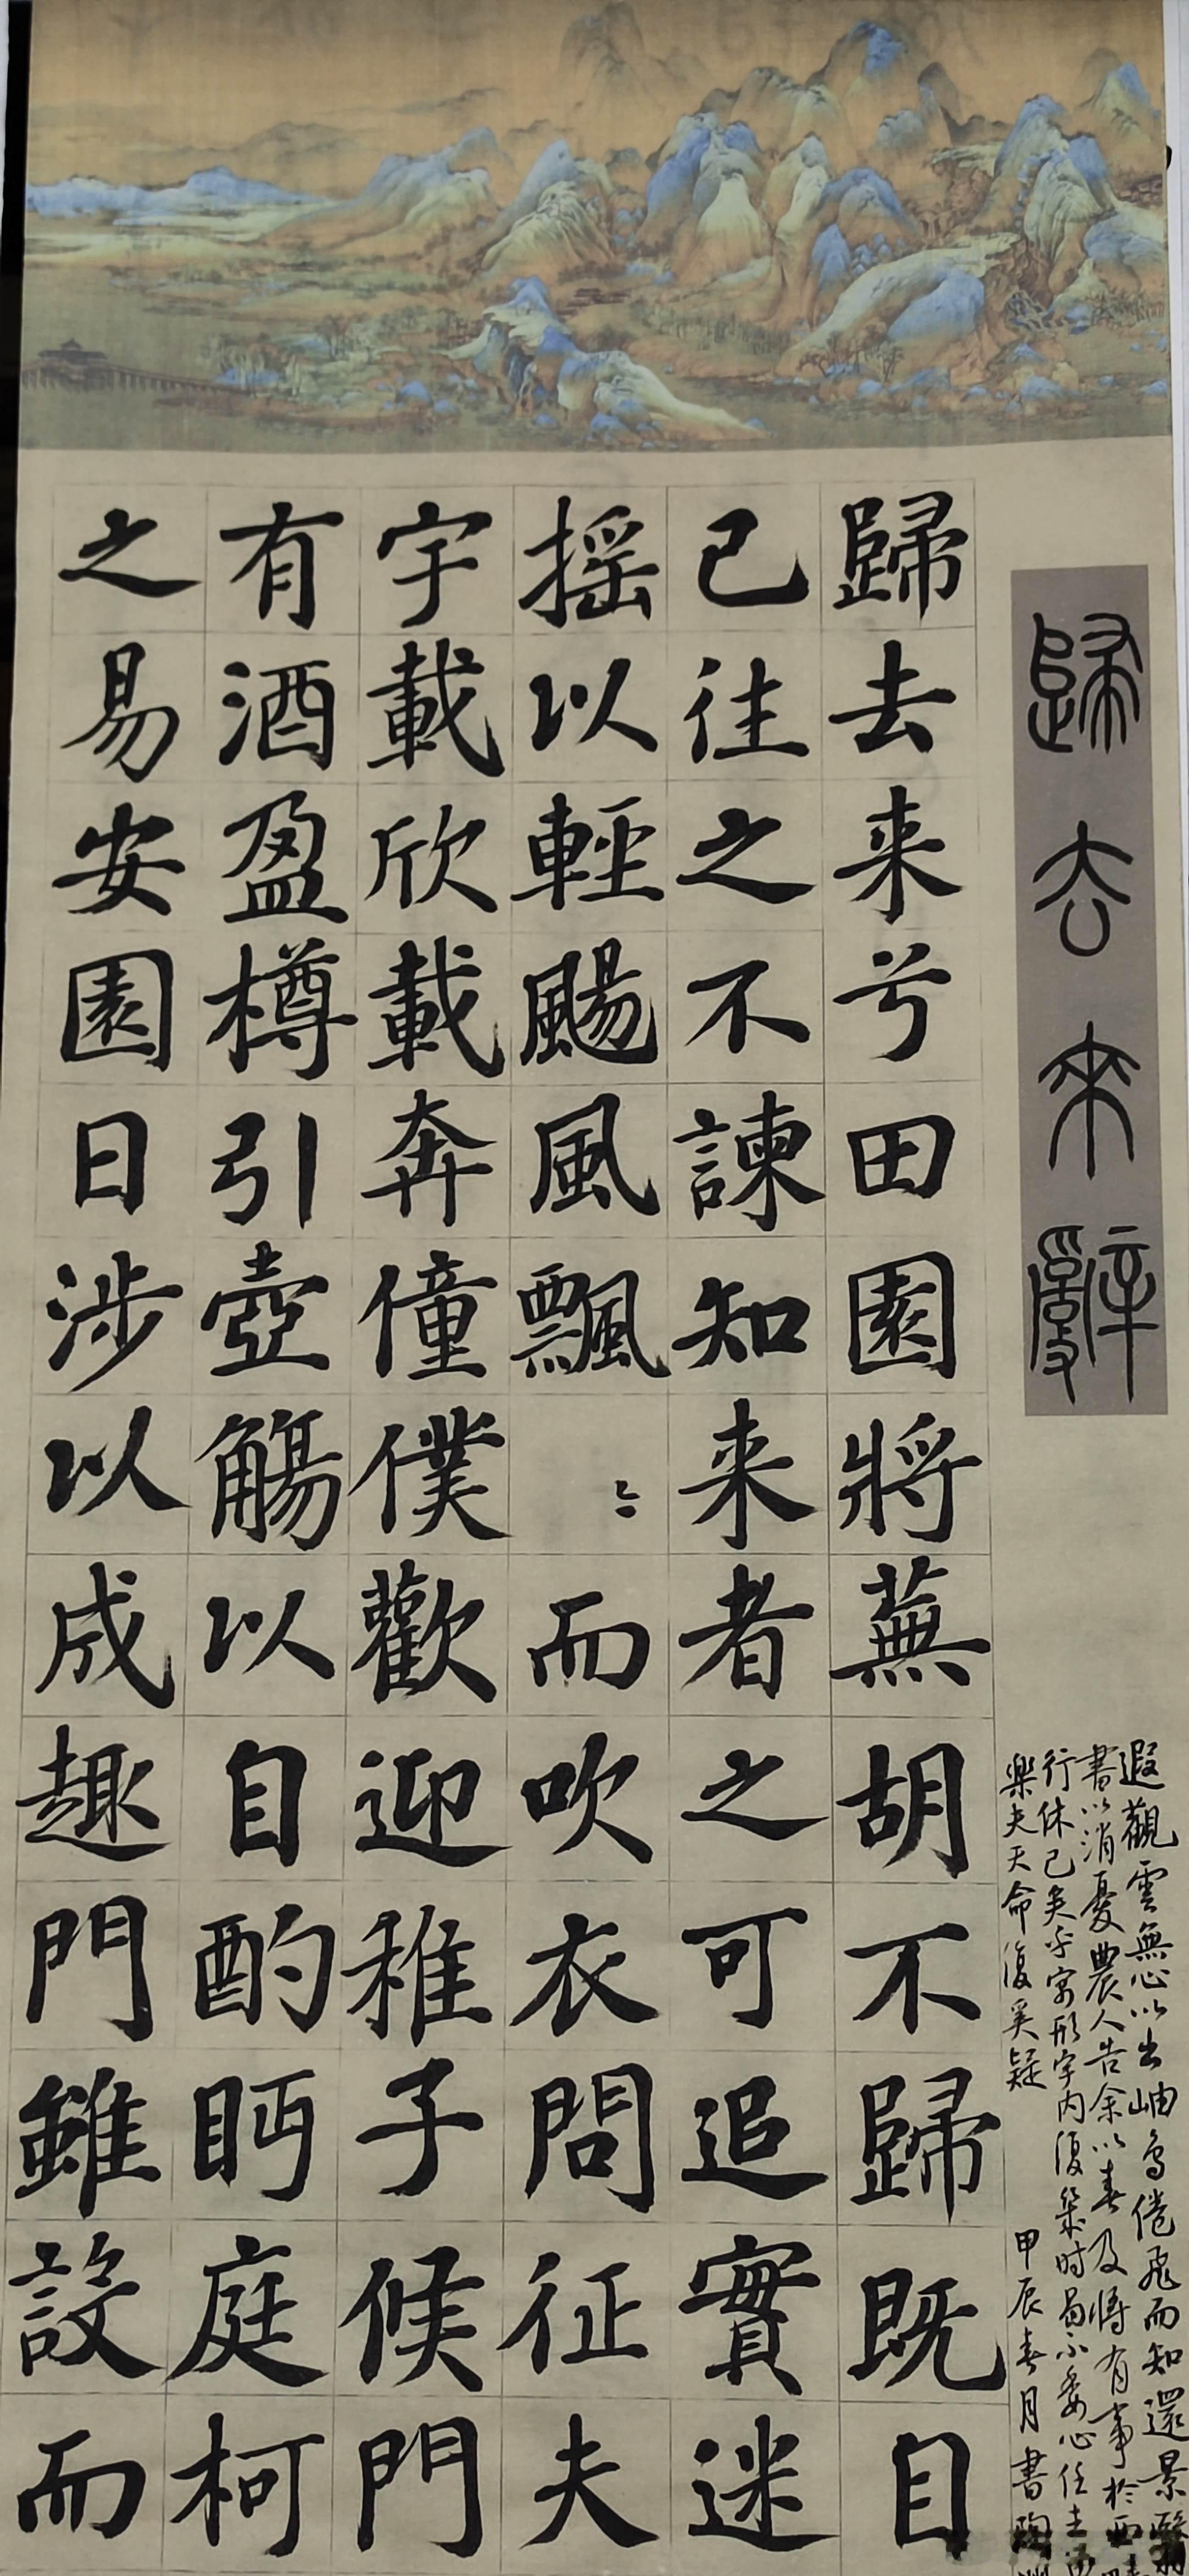 歸去来辭
歸去来兮田園將蕪胡不歸既自
已往之不諫知来者之可追實迷
摇以輕颺風飄〻而吹衣問征夫
宇載欣載奔僮僕歡迎稚子候門
有酒盈樽引壺觴以自酌眄庭柯
之易安園日涉以成趣門雖設而
遐觀雲無心以出岫鳥倦飛而知還景翳
書以消憂農人告余以春及將有事於西
行休已矣乎寓形宇内復幾时曷不委心任去
樂夫天命復奚疑
甲辰春月書陶